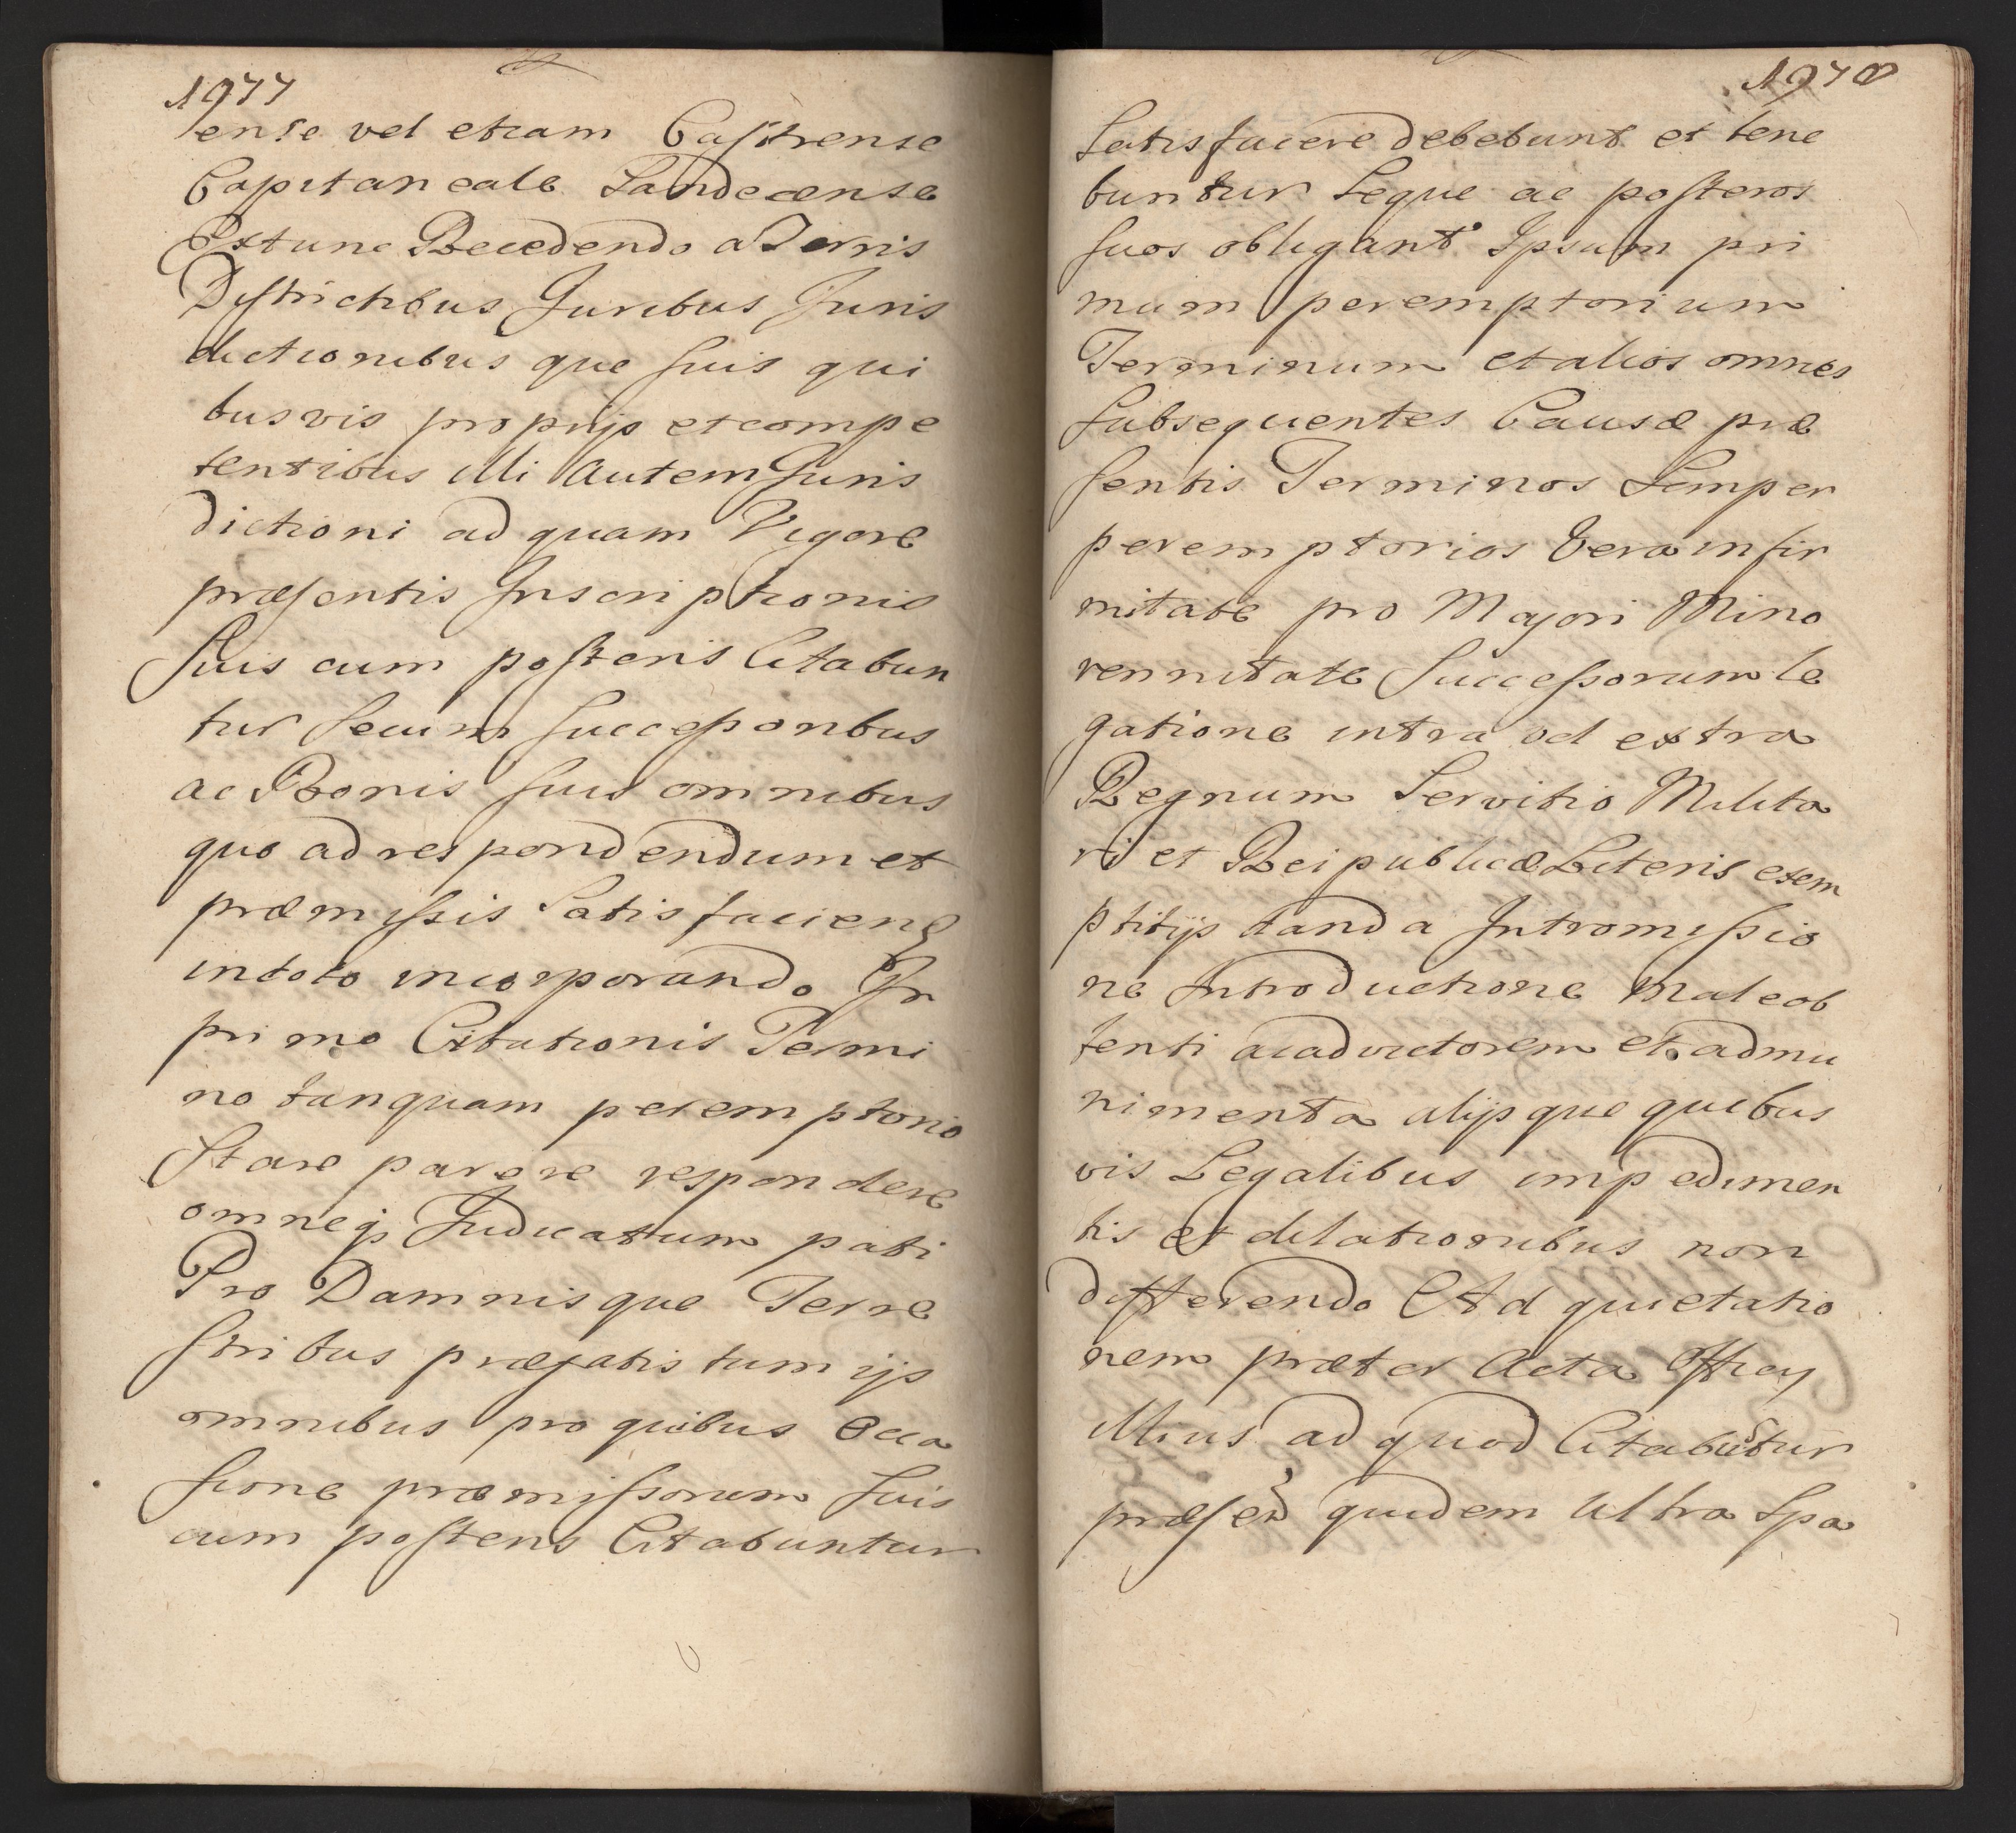 1977
ense vel etiam Castrense
Capitaneale Sandecense
Extunc Recedendo a Terris
Districtibus Juribus Juris
dictionibus que suis qui
busvis proprijs et compe
tentibus illi Autem Juris
dictioni ad quam Vigore
præsentis Inscriptionis
Suis cum posteris Citabun
tur secum Successoribus
ac Bonis suis omnibus
quo ad respondendum et
præmissis Satisfaciend
in toto incorporando In
primo Citationis Termi
no tanquam peremptorio
Stare parere respondere
omneq Judicattum pati
Pro Damnisque Terre
stribus præfatis tum ijs
omnibus pro quibus Occa
sione præmissorum Suis
cum posteris Citabuntur
1978
Satisfacere debebunt et tene
buntur Seque ac posteros
suos obligant Ipsum pri
mum peremptorium
Terminum et alios omnes
subsequentes Causæ præ
sentis Terminos Semper
peremptorios Vera infir
mitate pro Majori Mino
rennitate Successorum le
gatione intra vel extra
Regnum Servitio Milita
ri et Reipublicæ Literis exem
ptitijs danda Intromissio
ne Introductione male ob
tenti ac ad victorem et ad mu
nimenta alijs que quibus
vis Legalibus impedimen
tis et dilationibus non
differendo Ad quietatio
nem præter Acta Officy
illius ad quod Citabuntur
præsen quidem Ultra Spa